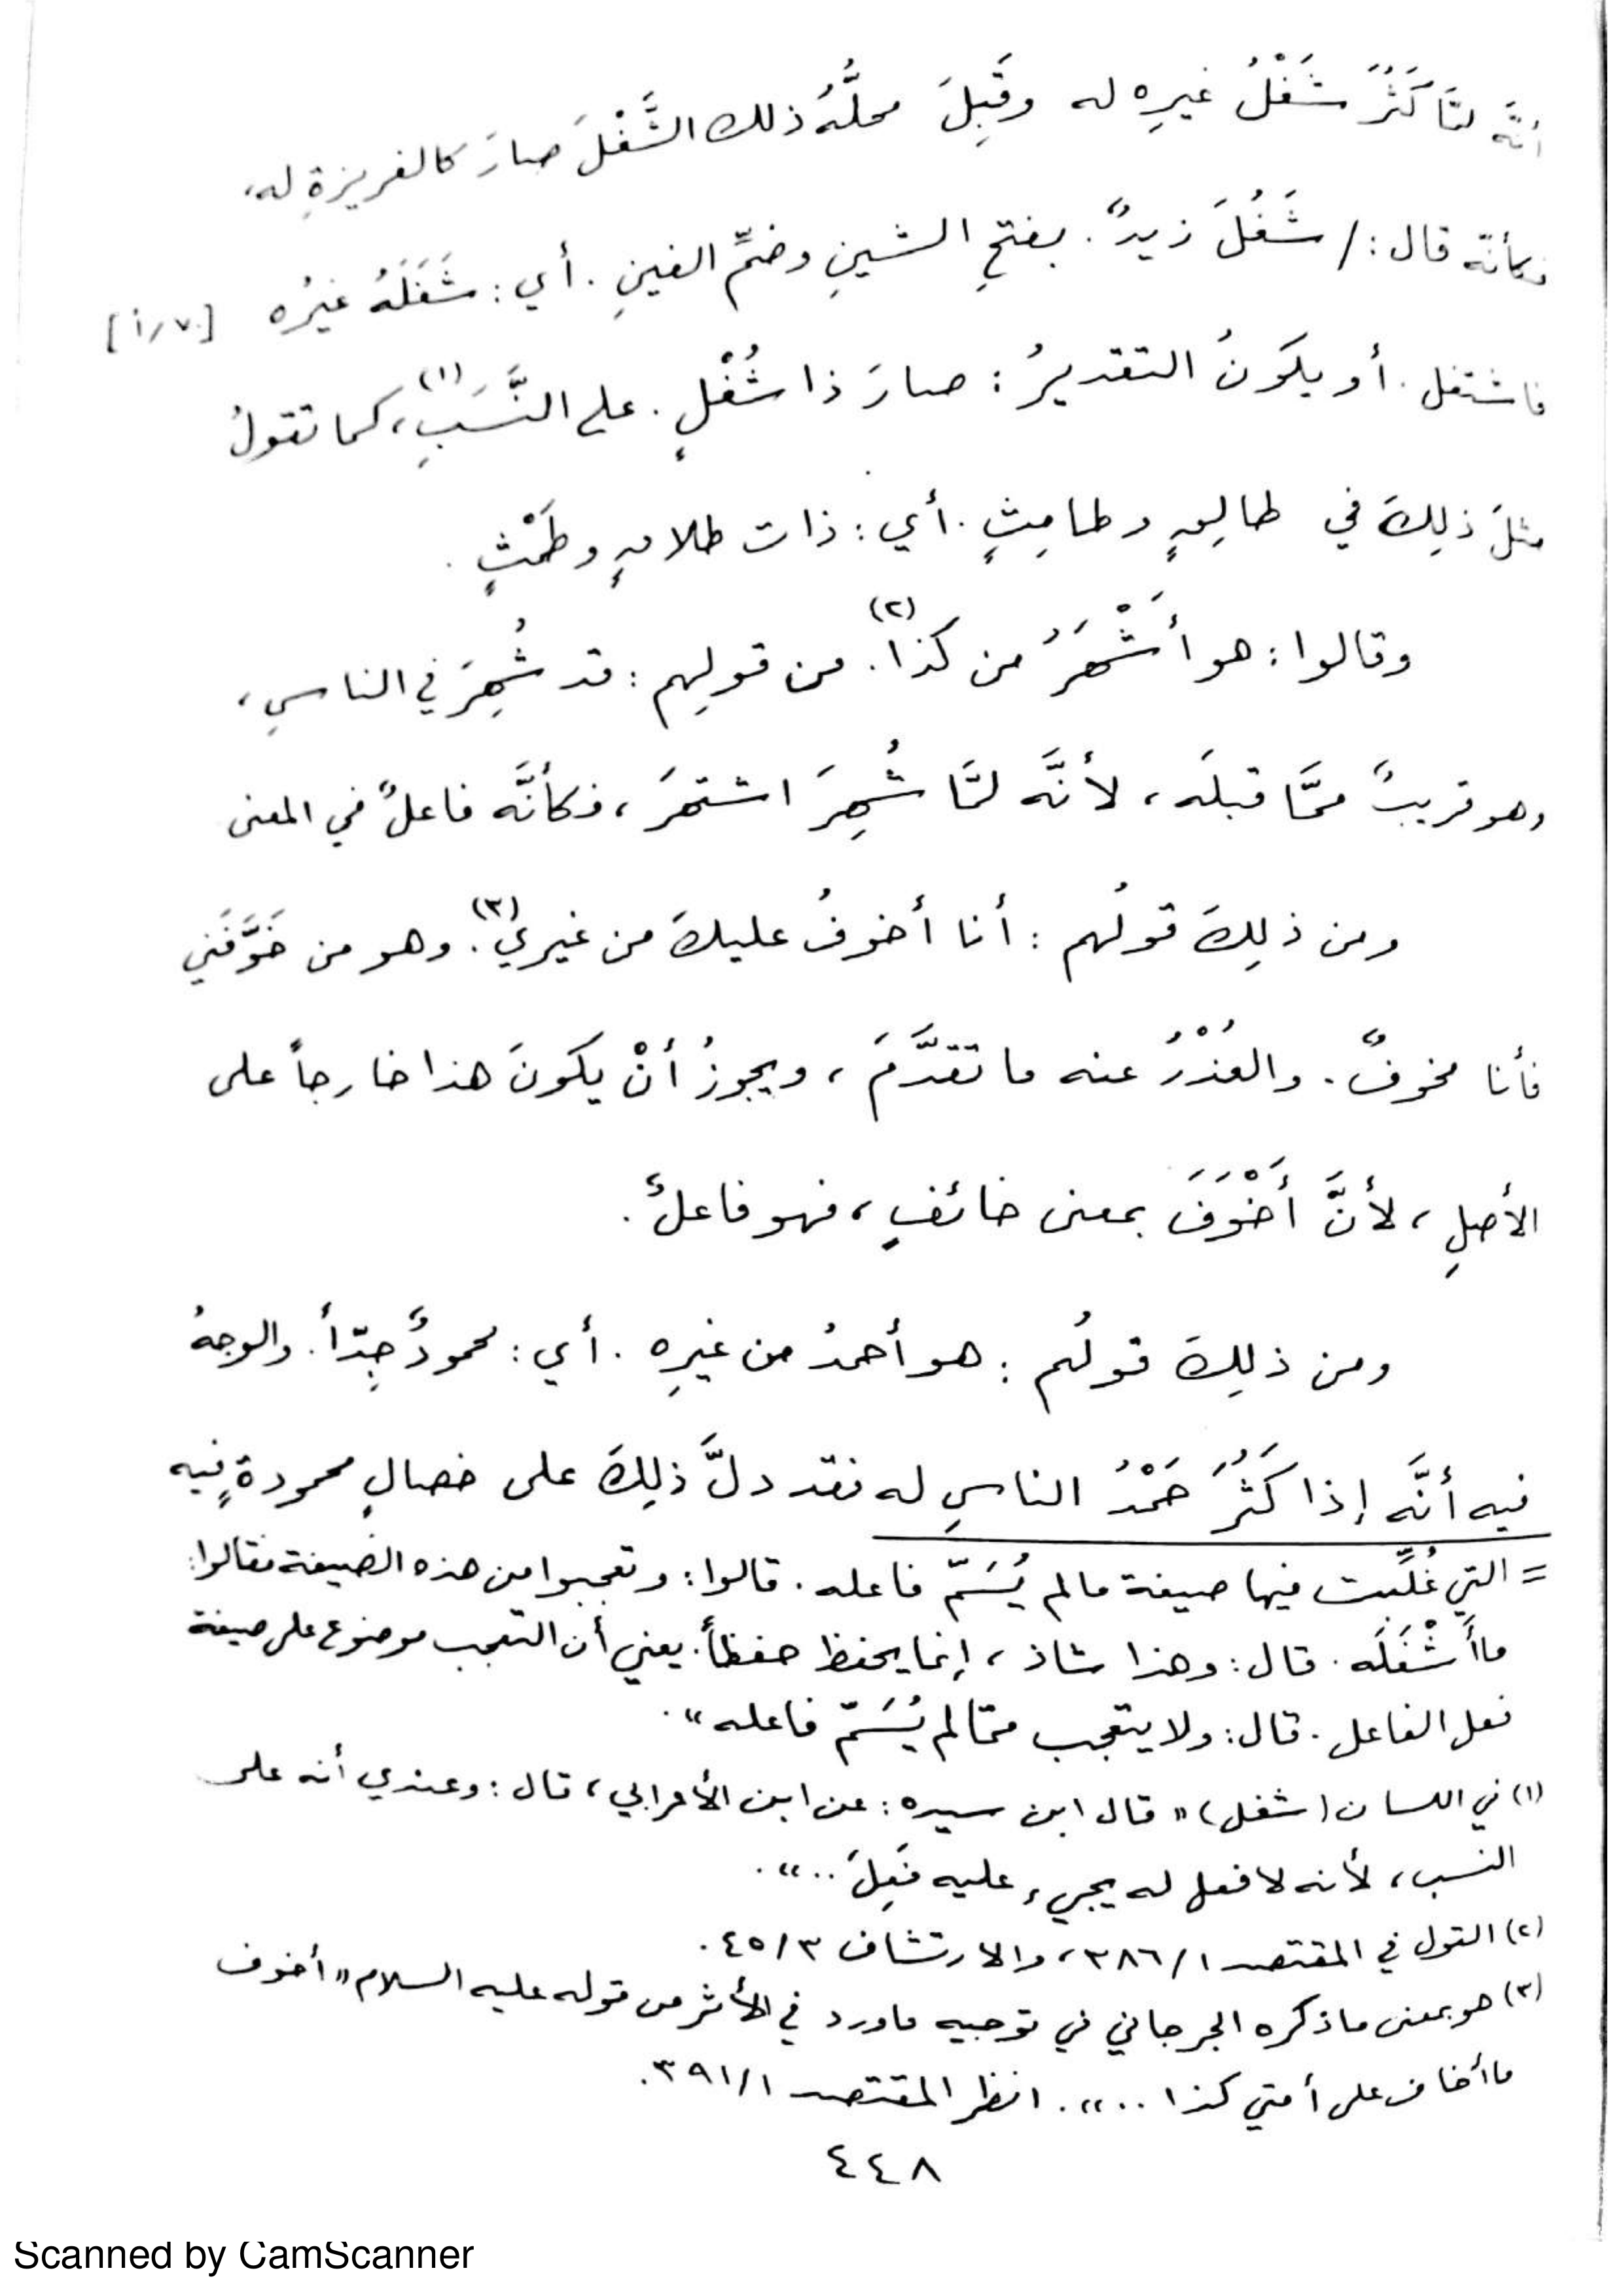 أنَّه لمَّا كَثُرَ شَغْلُ غيرِه له وقَبِلَ محلُّهُ ذلك الشَّغْلَ صارَ كالغريزةِ له،
فكأنّه قال: / شَغُلَ زيدٌ. بفتحِ الشينِ وضمِّ الغينِ. أي: شَغَلَهُ غيرُه [٧٠/أ]
فاشتغل. أو يكونُ التقديرُ: صارَ ذا شُغْلٍ. على النَّسَبِ(١)، كما تقولُ
مثلَ ذلِكَ في طالِقٍ وطامِثٍ. أي: ذات طلاقٍ وطَمْثٍ.
وقالوا: هو أَشْهَرُ من كذا(٢). من قولِهم: قد شُهِرَ في الناسِ،
وهو قريبٌ ممَّا قبلَه، لأنَّه لمَّا شُهِرَ اشتهرَ، فكأنَّه فاعلٌ في المعنى
ومن ذلِكَ قولُهم: أنا أخوفُ عليكَ من غيري(٣). وهو من خَوَّفَني
فأنا مخوفٌ. والعُذْرُ عنه ما تقدَّمَ، ويجوزُ أنْ يكونَ هذا خارجاً على
الأصلِ، لأنَّ أَخْوَفَ بمعنى خائفٍ، فهو فاعلٌ.
ومن ذلِكَ قولُهم: هو أحمدُ من غيرِه. أي: محمودٌ جِدّاً. والوجهُ
فيه أنَّه إذا كَثُرَ حَمْدُ الناسِ له فقد دلَّ ذلِكَ على خصالٍ محمودةٍ فيه
= التي غُلِّبت فيها صيغة مالم يُسَمّ فاعله. قالوا: وتعجبوا من هذه الصيغة فقالوا:
ما أَشْغَلَه. قال: وهذا شاذ، إنما يحفظ حفظاً. يعني أن التعجب موضوع على صيغة
فعل الفاعل. قال: ولا يتعجب ممّا لم يُسَمّ فاعله».
(١) في اللسان (شغل) «قال ابن سيده: عن ابن الأعرابي، قال: وعندي أنه على
النسب، لأنه لا فعل له يجيء عليه فَعِلَ..».
(٢) القول في المقتصد ٣٨٦/١، والارتشاف ٤٥/٣.
(٣) هو بمعنى ما ذكره الجرجاني في توجيه ما ورد في الأثر من قوله عليه السلام «أخوف
ما أخاف على أمتي كذا..». انظر المقتصد ٣٩١/١.
٤٤٨
Scanned by CamScanner